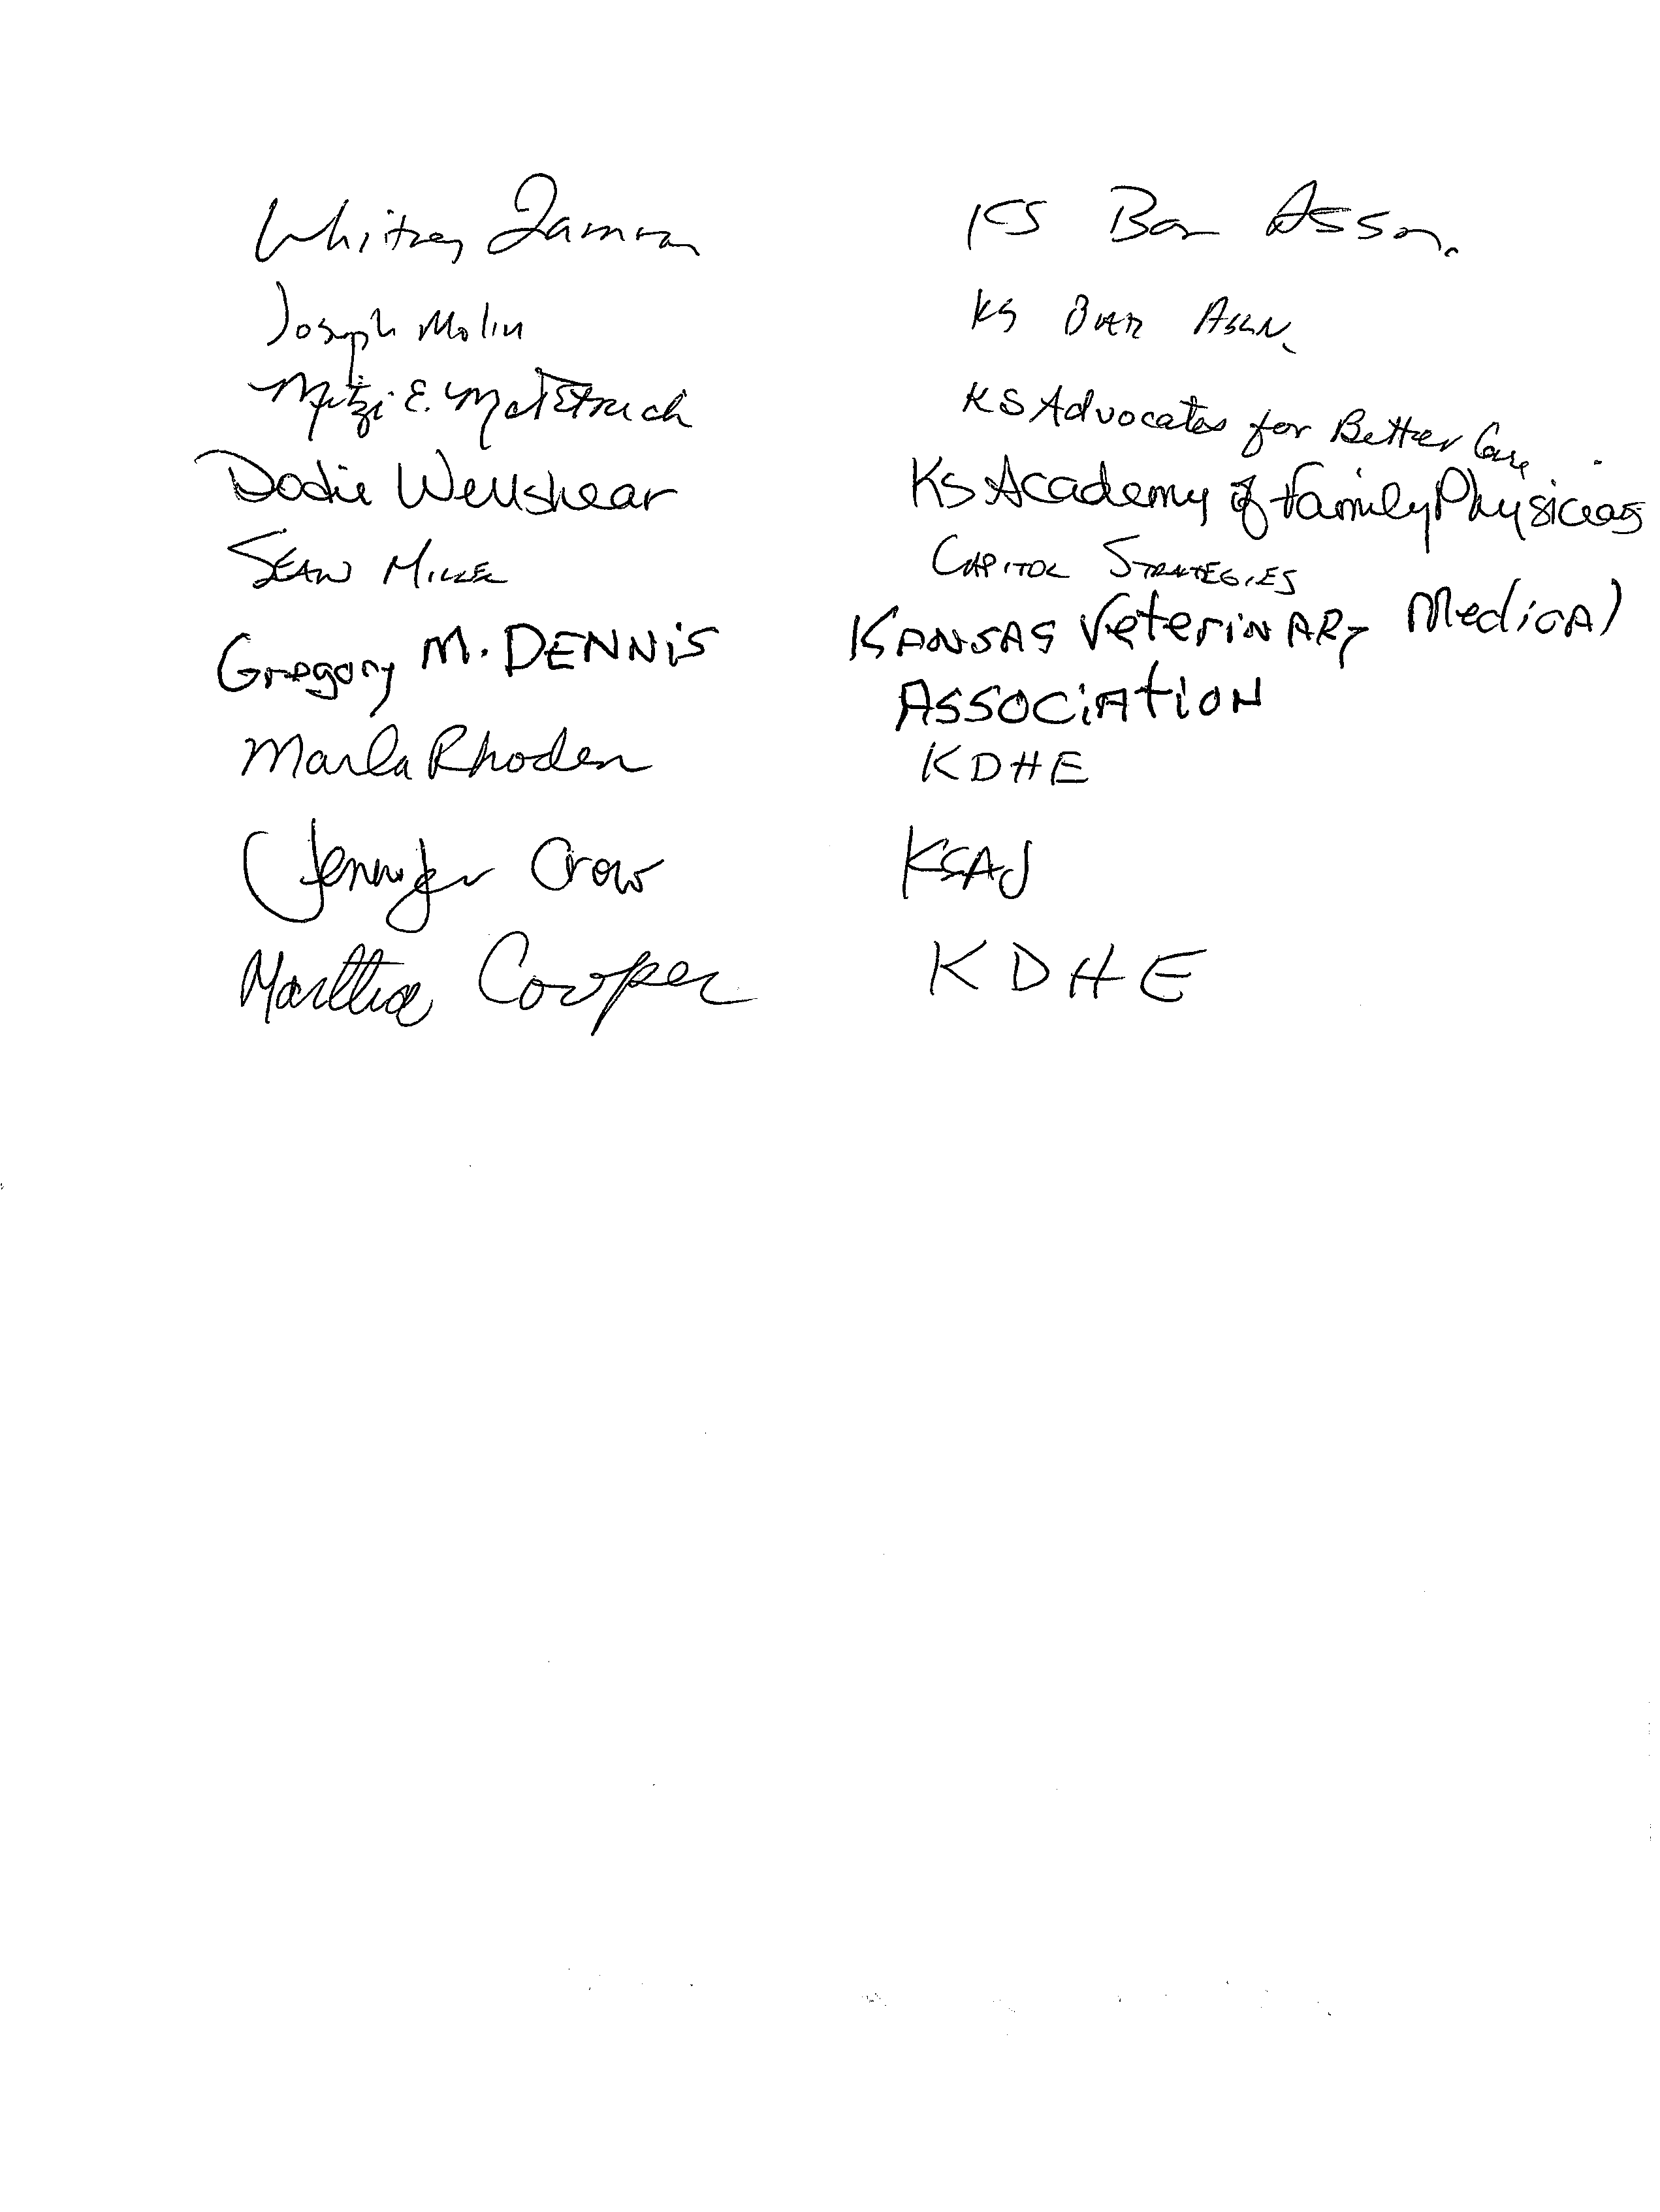 Whitney Damron KS Bar Assn.
Joseph Molin KS BAR ASSN.
Mitzi E. McFatrich KS Advocates for Better Care
Dodie Wellshear KS Academy of Family Physicians
SEAN MILLER CAPITOL STRATEGIES
Gregory M. DENNIS KANSAS VeterinARy MedicAl
ASSOCiAtiON
Marla Rhoden KDHE
Jennifer Crow KSAJ
Martha Cooper KDHE